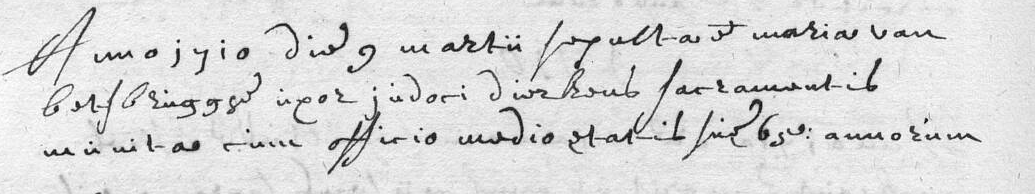 Anno 1710 die 9 martii sepulta e maria van
betsbrugge uxor judoci dierkens sacramentis
munita cum officio medio etatis sue 65 : annorum